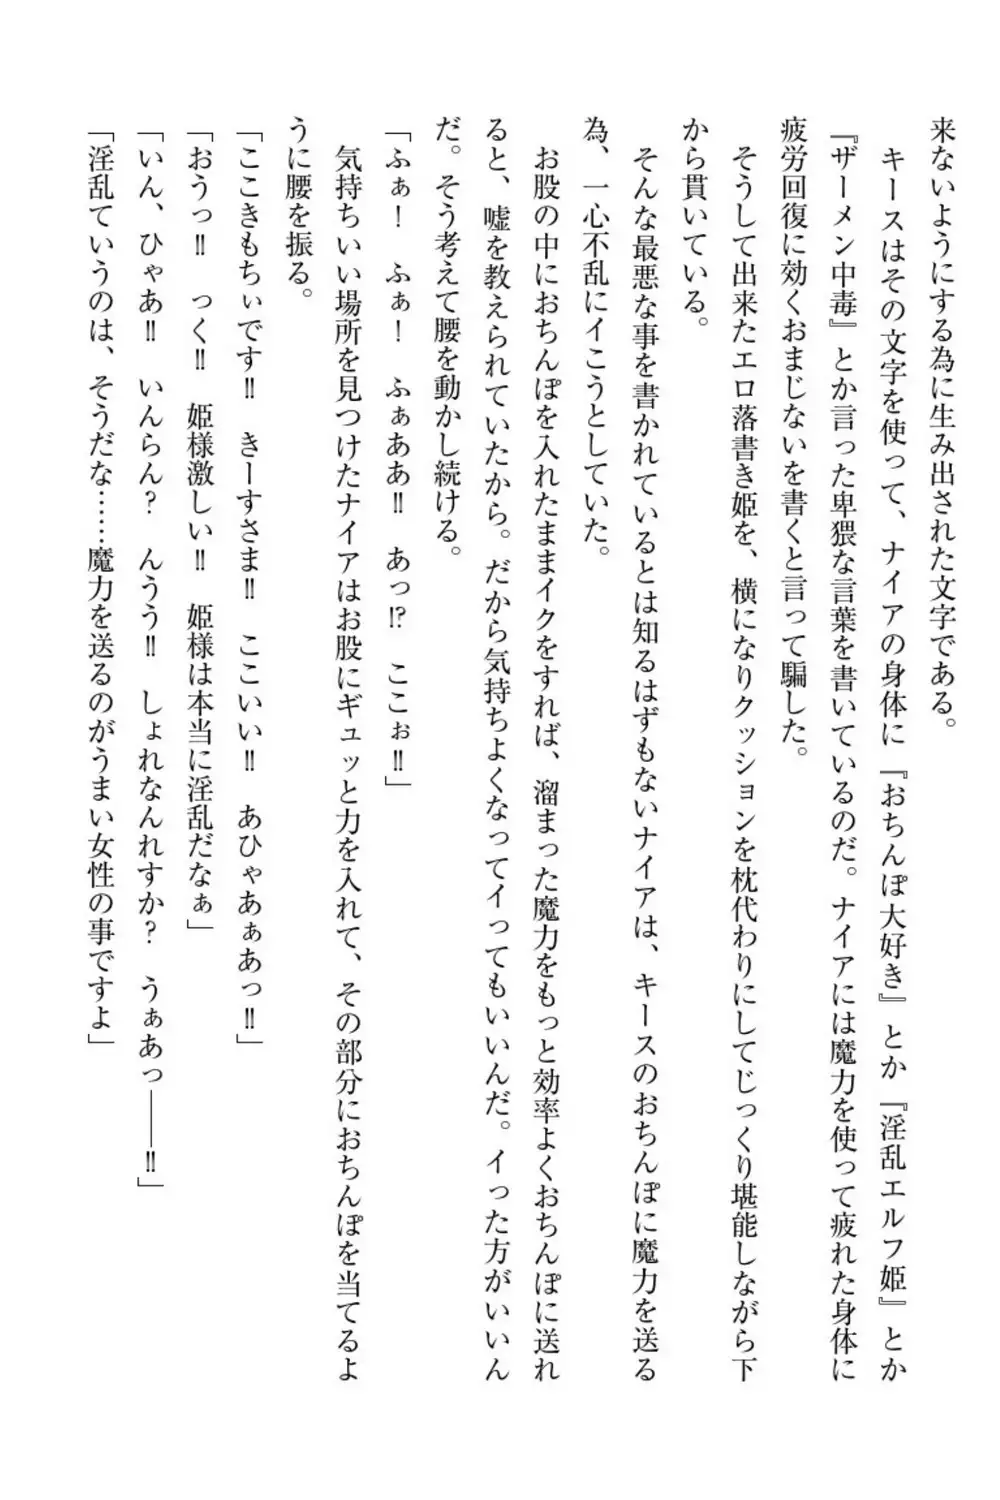 来ないようにする為に生み出された文字である。
キースはその文字を使って、ナイアの身体に『おちんぽ大好き』とか『淫乱エルフ姫』とか
『ザーメン中毒』とか言った卑猥な言葉を書いているのだ。ナイアには魔力を使って疲れた身体に
疲労回復に効くおまじないを書くと言って騙した。
そうして出来たエロ落書き姫を、横になりクッションを枕代わりにしてじっくり堪能しながら下
から貫いている。
そんな最悪な事を書かれているとは知るはずもないナイアは、キースのおちんぽに魔力を送る
為、一心不乱にイこうとしていた。
お股の中におちんぽを入れたままイクをすれば、溜まった魔力をもっと効率よくおちんぽに送れ
ると、嘘を教えられていたから。だから気持ちよくなってイってもいいんだ。イった方がいいん
だ。そう考えて腰を動かし続ける。
「ふぁ！　ふぁ！　ふぁああ‼　あっ⁉　ここぉ‼」
気持ちいい場所を見つけたナイアはお股にギュッと力を入れて、その部分におちんぽを当てるよ
うに腰を振る。
「ここきもちぃです‼　きーすさま‼　ここいい‼　あひゃあぁあっ‼」
「おうっ‼　っく‼　姫様激しい‼　姫様は本当に淫乱だなぁ」
「いん、ひゃあ‼　いんらん？　んうう‼　しょれなんれすか？　うぁあっ――‼」
「淫乱ていうのは、そうだな……魔力を送るのがうまい女性の事ですよ」